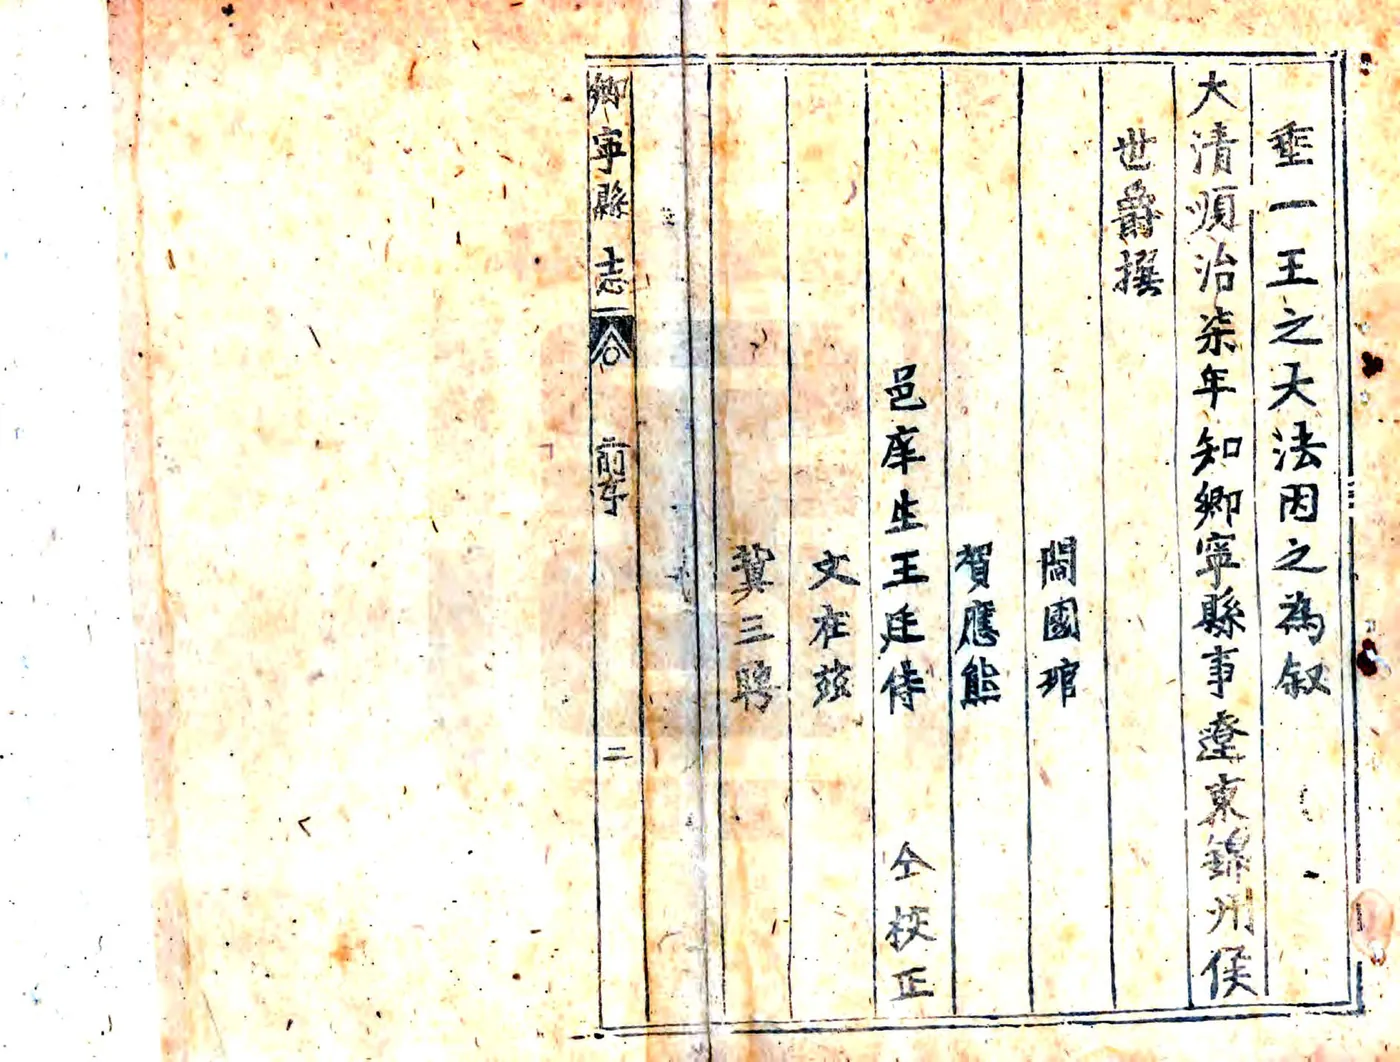 垂一王之大法因之為叙
大清順治柒年知鄉寧縣事遼東錦州侯
世爵撰
閻國琯
賀應熊
邑庠生王廷侍 仝校正
文在茲
冀三聘
鄉寧縣志 前序 二